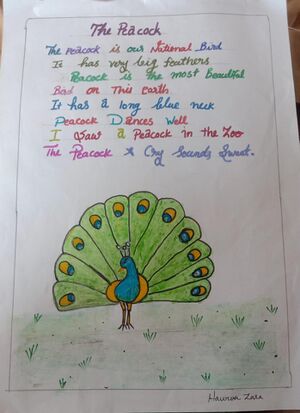 The Peacock
The Peacock is our National Bird
It has very big feathers
Peacock is the most beautiful
Bad on This Earth
It Has a long blue neck
Peacock Dances Well
I Saw a Peacock in the Zoo
The Peacock Cry Sounds Sweat.
Zara